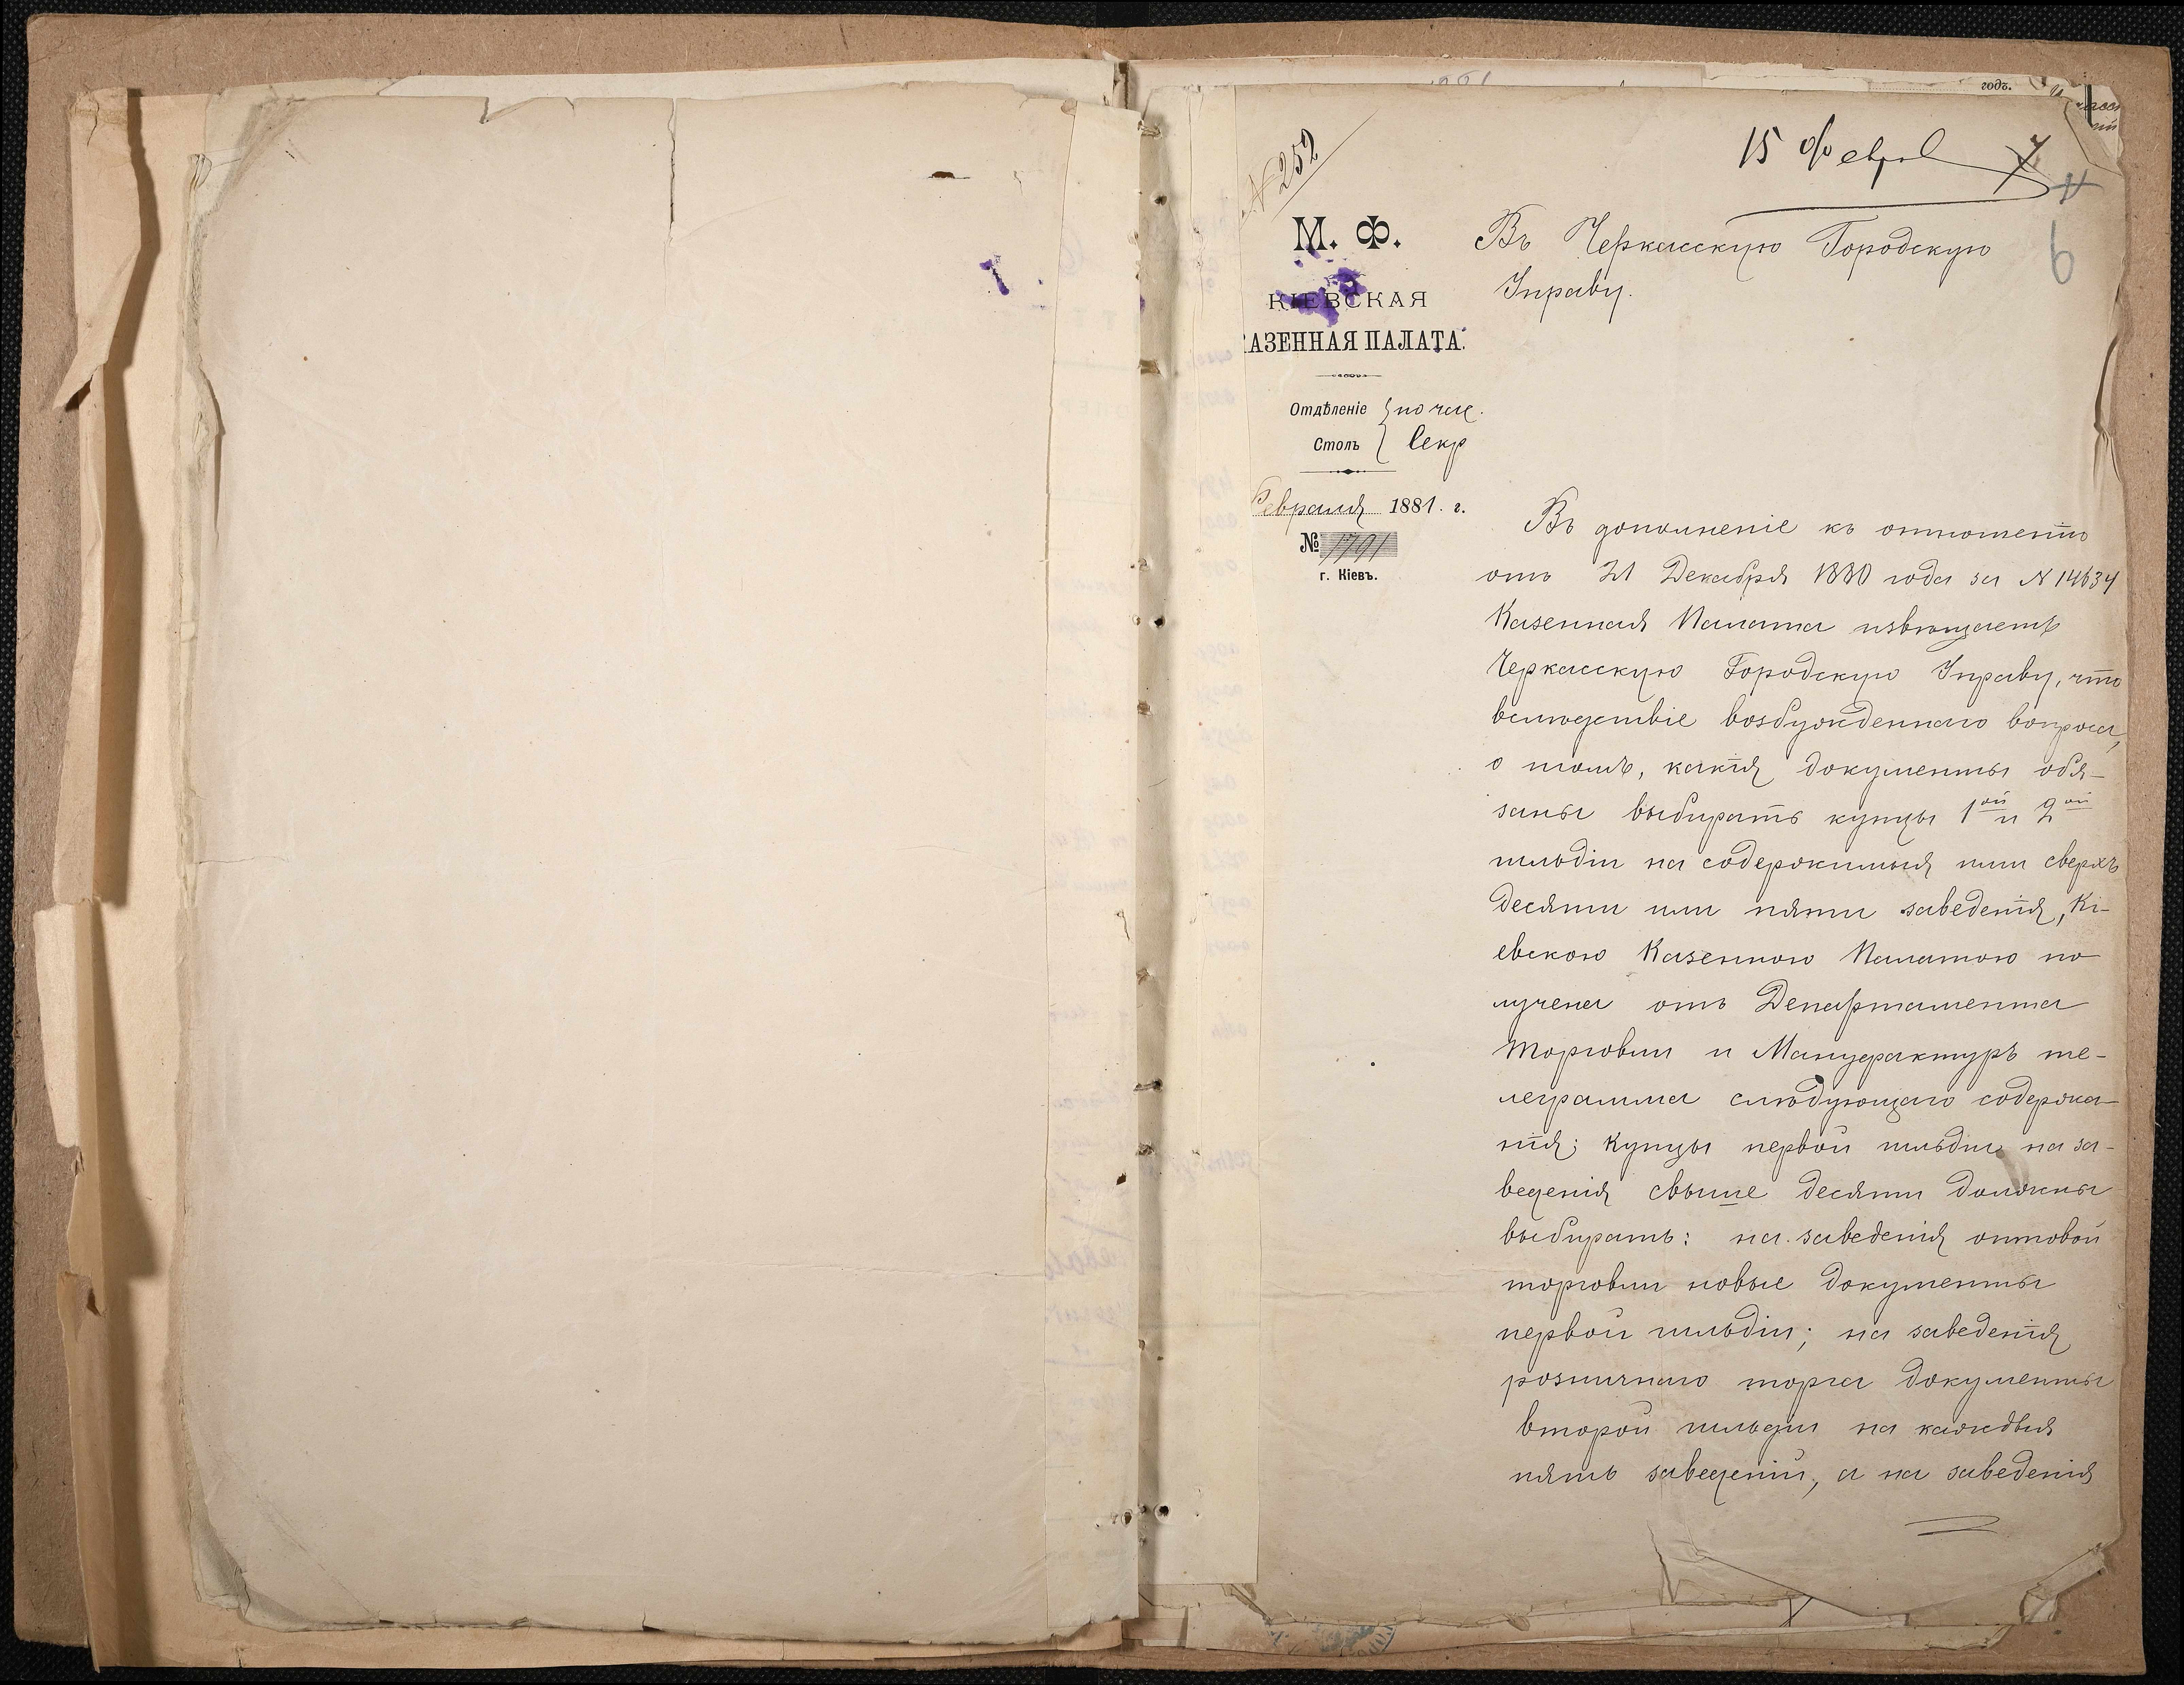 годъ.
N 252
15 Феврал
6
М. Ф.
КІЕВСКАЯ
КАЗЕННАЯ ПАЛАТА.
Отдѣленіе
Столъ Секр
Февраля 1881. г.
№ 1791
г. Кіевъ.
Въ Черкасскую Городскую
Управу.
Въ дополненіе къ отношенію
отъ 21 Декабря 1880 года за N 14634
Казенная Палата извѣщаетъ
Черкасскую Городскую Управу, что
вслѣдствіе возбужденнаго вопроса,
о томъ, какія документы обя-
заны выбирать купцы 1ой и 2ой
гильдіи на содержимыя ими сверхъ
десяти или пяти заведенія, Кі-
евскою Казенною Палатою по
лучена отъ Департамента
Торговли и Мануфактуръ те-
леграмма слѣдующаго содержа-
нія: Купцы первой гильдіи на за-
веденія свыше десяти должны
выбирать: на заведенія оптовой
торговли новые документы
первой гильдіи; на заведенія
розничнаго торга документы
второй гильдіи на каждыя
пять заведеній, а на заведенія